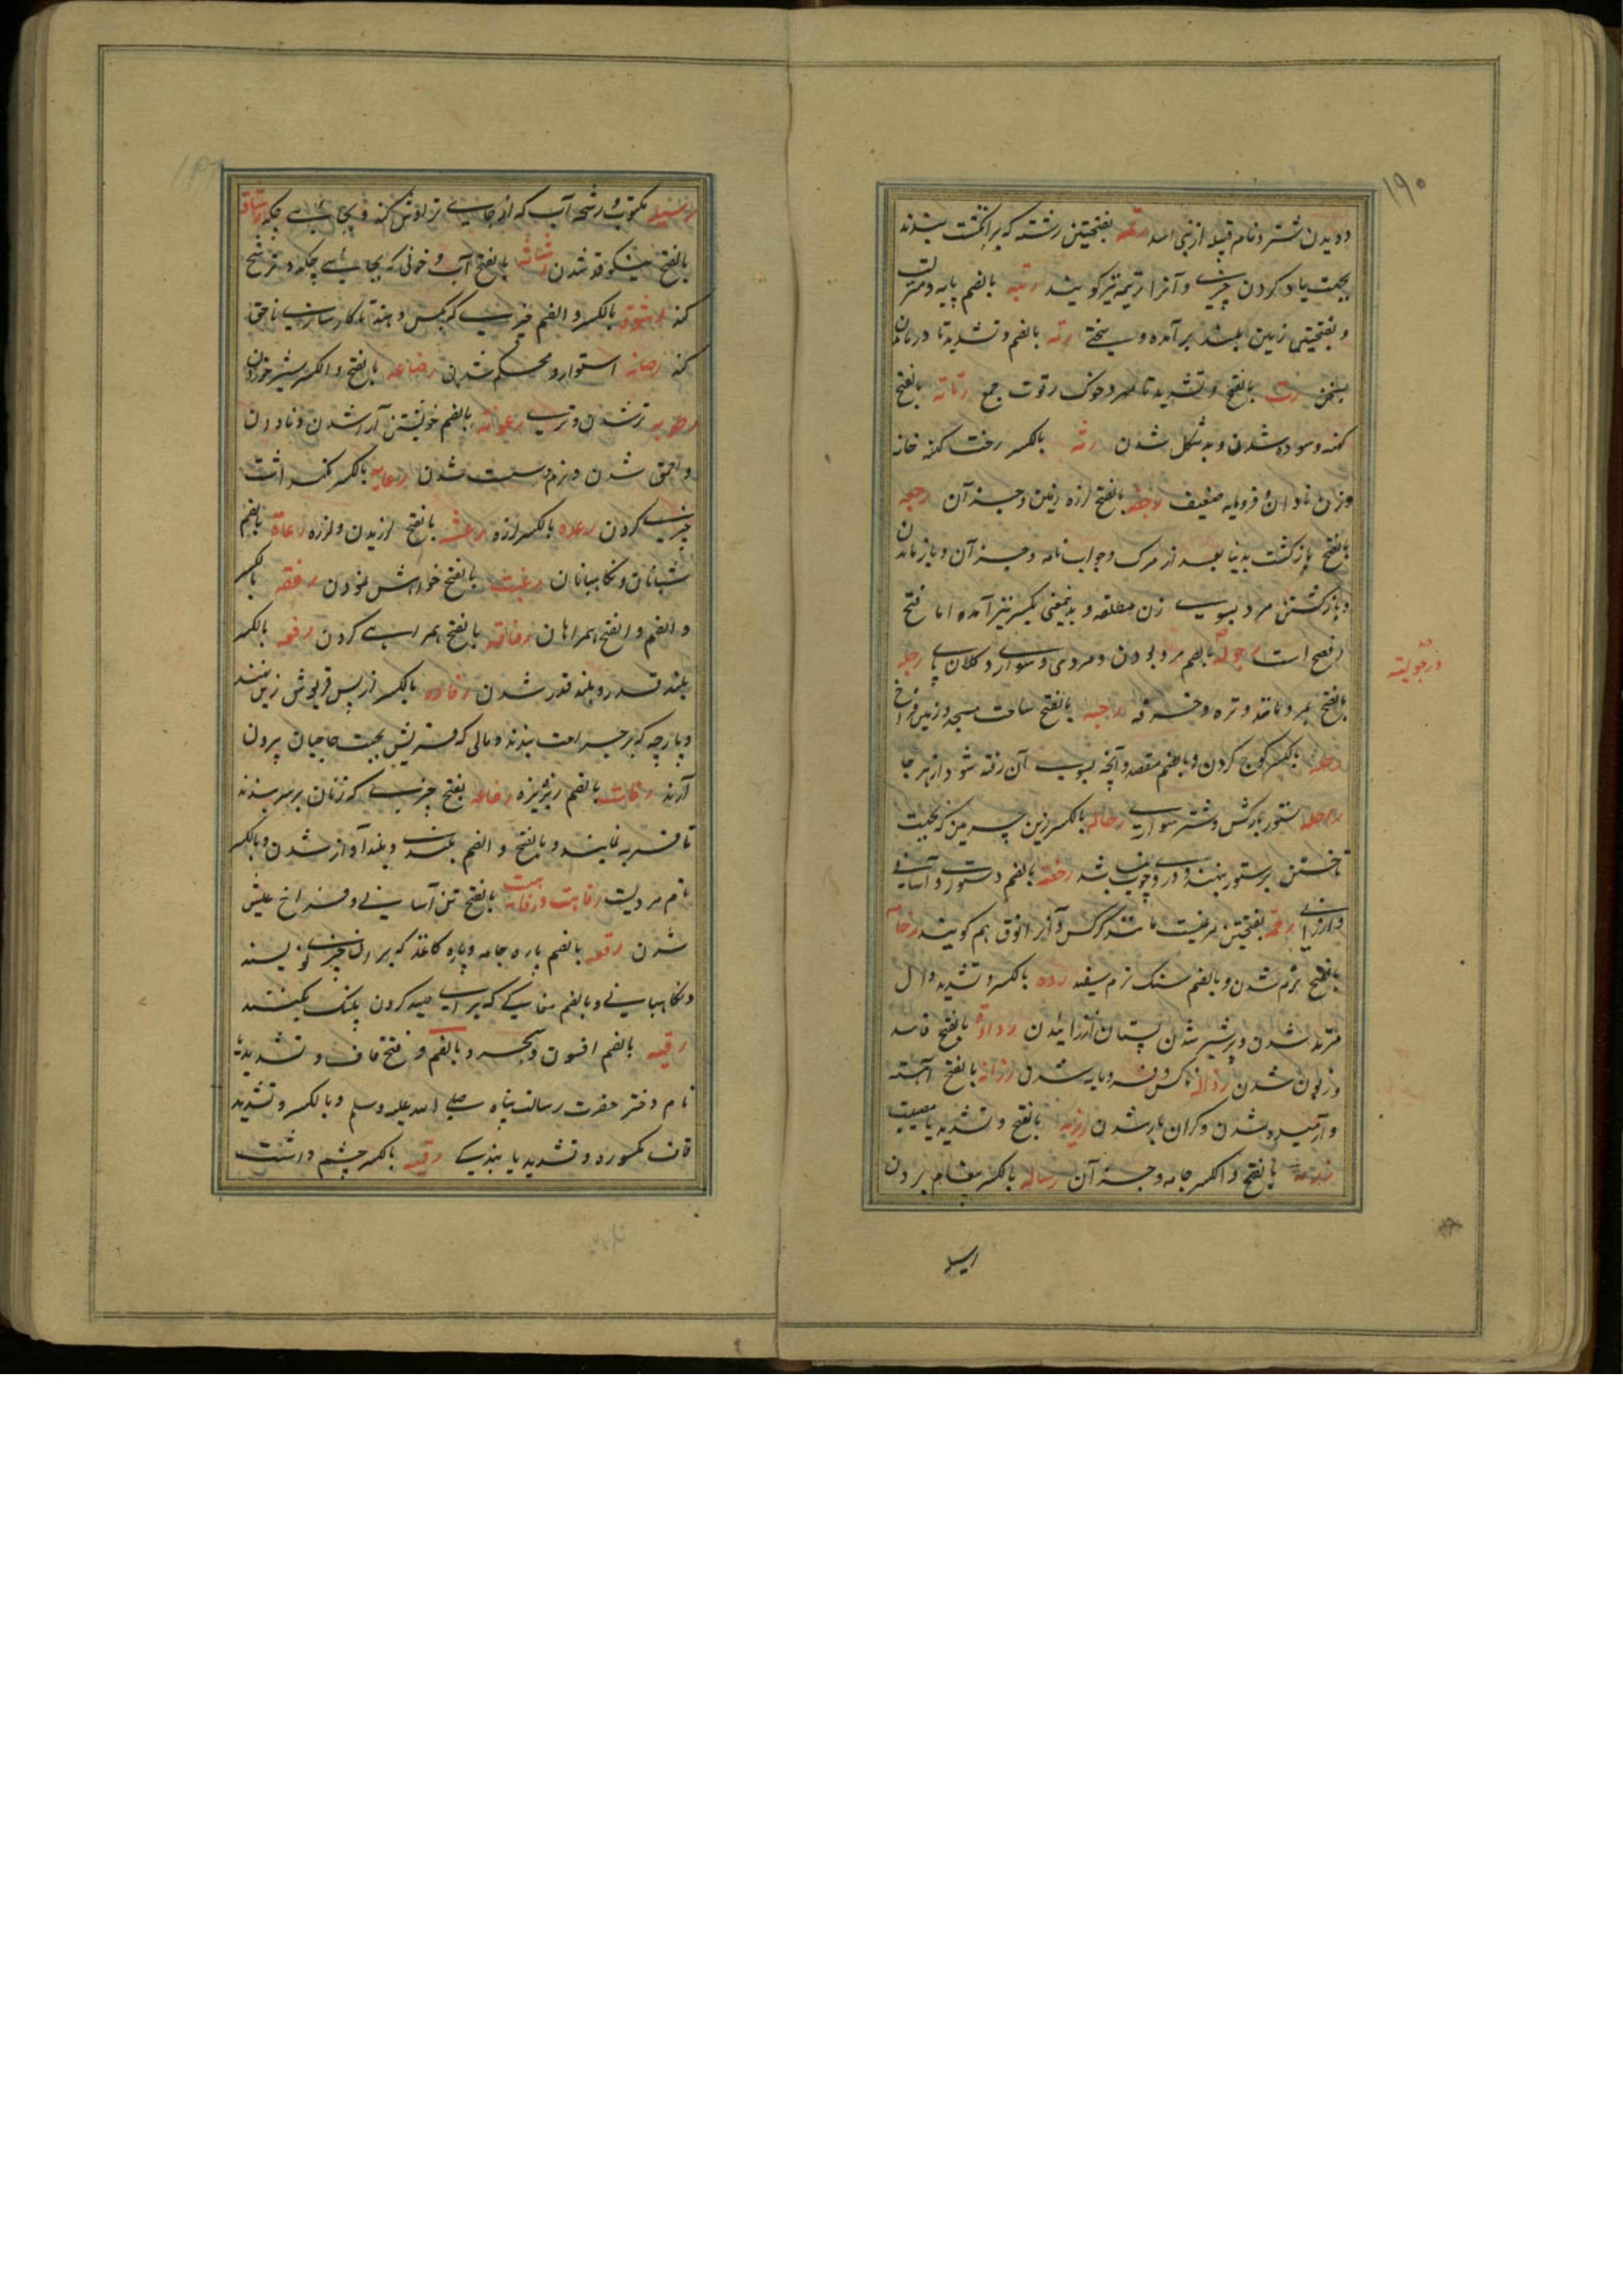 ۱۹۰
دویدن شتر و نام قبیله از بنی اسد رتمه بفتحتین رشته که بر انگشت بندند
بجهت یاد کردن چیزی و آنرا رتیمه نیز گویند رتبه بالضم پایه و منزلت
و بفتحتین زمین بلند برآمده و سختی رته بالضم و تشدید تا درماندن
بسخن رت بالفتح و تشدید تا مهتر و خوک رتوت جمع رثاثه بالفتح
کهنه و سوده شدن و بدشکل شدن رثه بالکسر رخت کهنه خانه
و زن نادان و فرومایه ضعیف رجفه بالفتح لرزه زمین و جز آن رجعه
بالفتح بازگشت بدنیا بعد از مرگ و جواب نامه و جز آن و باز ماندن
و بازگشتن مرد بسوی زن مطلقه و بدینمعنی بکسر نیز آمده اما فتح
افصح است رجوله بالضم مرد بودن و مردی و سواری و کلان پای رجله
ورجولیته
بالفتح مرد مانند و تره و خرفه رحبه بالفتح ساحت مسجد و زمین فراخ
رحله بالکسر کوچ کردن و بالضم مقصد و آنچه بسوی آن رفته شود از هر جا
راحله ستور بارکش و شتر سواری رحاله بالکسر زین چرمین که بجهت
تاختن بر ستور نهند و در وی چوب نباشد رخصه بالضم دستوری و آسانی
و ارزانی رخمه بفتحتین مرغیست مانند کرکس و آنرا انوق هم گویند رخامه
بالفتح نرم شدن و بالضم سنگ نرم سفید رده بالکسر و تشدید دال
مرتد شدن و پرشیر شدن پستان از زائیدن رداءة بالفتح فاسد
و زبون شدن رذاله ناکس و فرومایه شدن رزانه بالفتح آهسته
و آرمیده شدن و گران بار شدن رزیه بالفتح و تشدید یا مصیبت
رزمه بالفتح و الکسر جامه و جز آن رساله بالکسر پیغام بردن
رسیله مکتوب و رشحه آب که از جایی تراوش کند و بجایی چکد رشاقه
بالفتح نیکو قد شدن رشاشه بالفتح آب و خونی که بجایی چکد و ترشح
کند رشوة بالکسر و الضم چیزی که بکس دهند تا کارسازی ناحق
کند رصانه استوار و محکم شدن رضاعه بالفتح و الکسر شیر خوردن
رطوبه تر شدن و تری رعونه بالضم خویشتن آرا شدن و نادان
و احمق شدن و نرم و سست شدن رعایه بالکسر نگهداشت
چیزی کردن رعده بالکسر لرزه رعشه بالفتح لرزیدن و لرزه رعاة بالضم
شبانان و نگاهبانان رغبت بالفتح خواهش نمودن رفقه بالکسر
و الضم و الفتح همراهان رفاقه بالفتح همراهی کردن رفعه بالکسر
بلند قدر و بلند قدر شدن رفاده بالکسر از پس قربوش زین بندند
و پارچه که بر جراحت بندند و مالی که قریش بجهت حاجیان بیرون
آرند رفات بالضم ریزریزه رفاعه بفتح چیزی که زنان بر سرین بندند
تا فربه نمایند و بالفتح و الضم بلندی و بلند آواز شدن و بالکسر
نام مردیست رفاهت و رفاهیت بالفتح تن آسانی و فراخ عیش
شدن رقعه بالضم پاره جامه و پاره کاغذ که بر ان چیزی نویسند
و نگاهبانی و بالضم مغاکی که برای صید کردن پلنگ بکنند
رقیه بالضم افسون و سحر و بالضم و فتح قاف و تشدید یا
نام دختر حضرت رسالت پناه صلی الله علیه وسلم و بالکسر و تشدید
قاف مکسوره و تشدید یا بندگی رقبه بالکسر چشم داشت